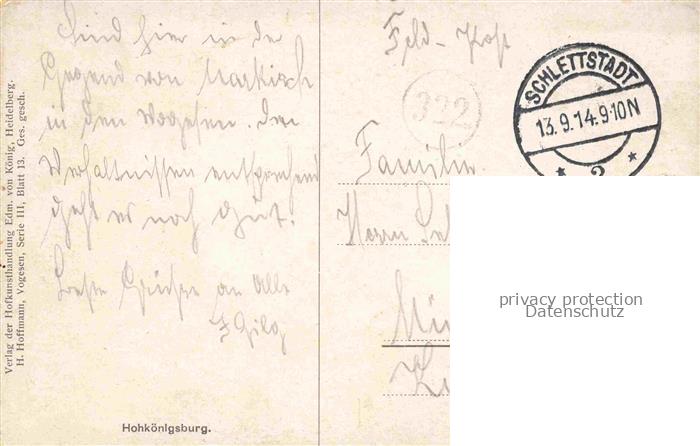 Sind hier in der
Gegend von Markirch
in den Vogesen. Den
Verhältnissen entsprechend
geht es noch gut.
Beste Grüsse an Alle
Feld-Post
322
SCHLETTSTADT
13.9.14.9-10N
* 2 *
Familie
Herrn
privacy protection
Datenschutz
Verlag der Hofkunsthandlung Edm. von König, Heidelberg.
H. Hoffmann, Vogesen, Serie III, Blatt 13. Ges. gesch.
Hohkönigsburg.